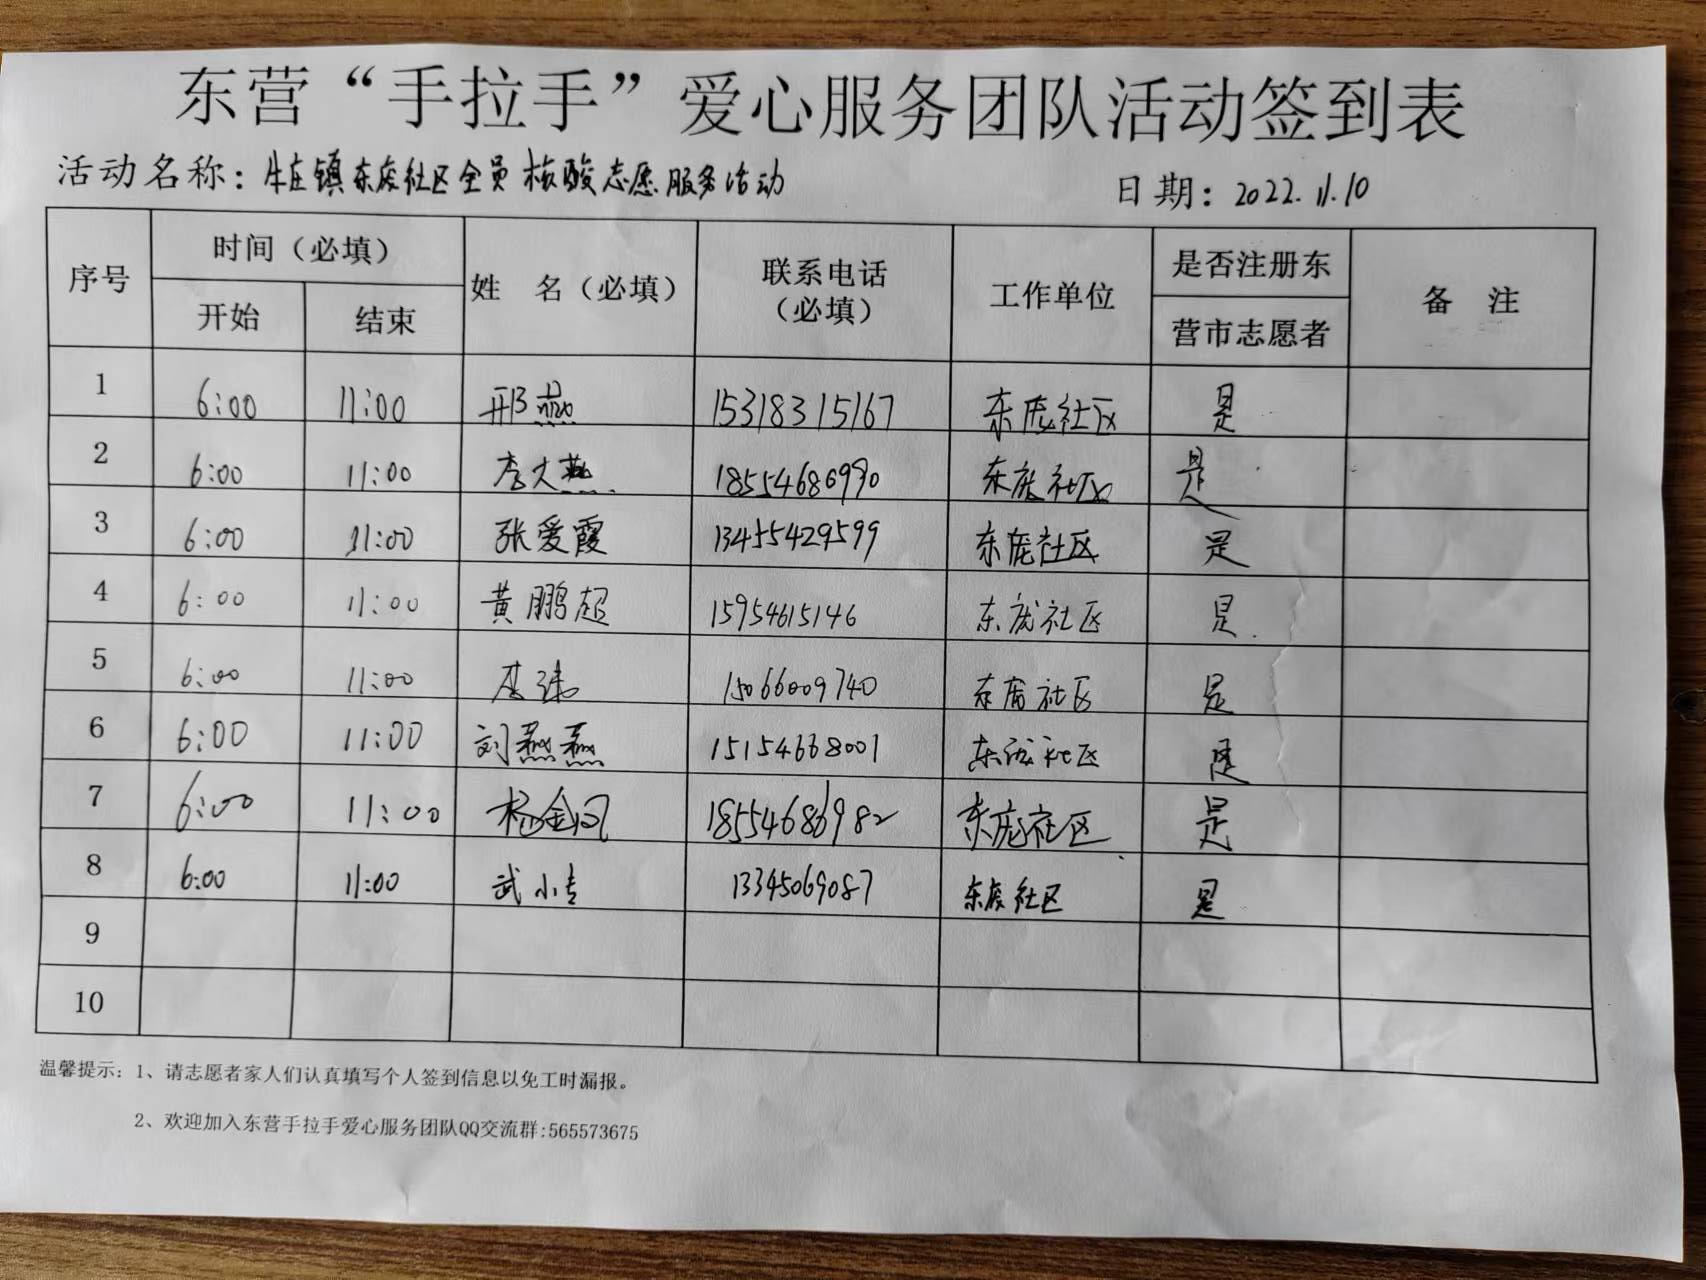 东营“手拉手”爱心服务团队活动签到表
活动名称：牛庄镇东庞社区全员核酸志愿服务活动 日期：2022.11.10
序号 时间（必填） 姓 名（必填） 联系电话（必填） 工作单位 是否注册东营市志愿者 备 注
开始 结束
1 6:00 11:00 邢燕 15318315167 东庞社区 是
2 6:00 11:00 李大燕 18554686990 东庞社区 是
3 6:00 11:00 张爱霞 13455429599 东庞社区 是
4 6:00 11:00 黄鹏超 15954615146 东庞社区 是
5 6:00 11:00 15066009740 东庞社区 是
6 6:00 11:00 刘燕燕 15154668001 东庞社区 是
7 6:00 11:00 杨金凤 18554686982 东庞社区 是
8 6:00 11:00 武小 13345069087 东庞社区 是
9
10
温馨提示：1、请志愿者家人们认真填写个人签到信息以免工时漏报。
2、欢迎加入东营手拉手爱心服务团队QQ交流群:565573675